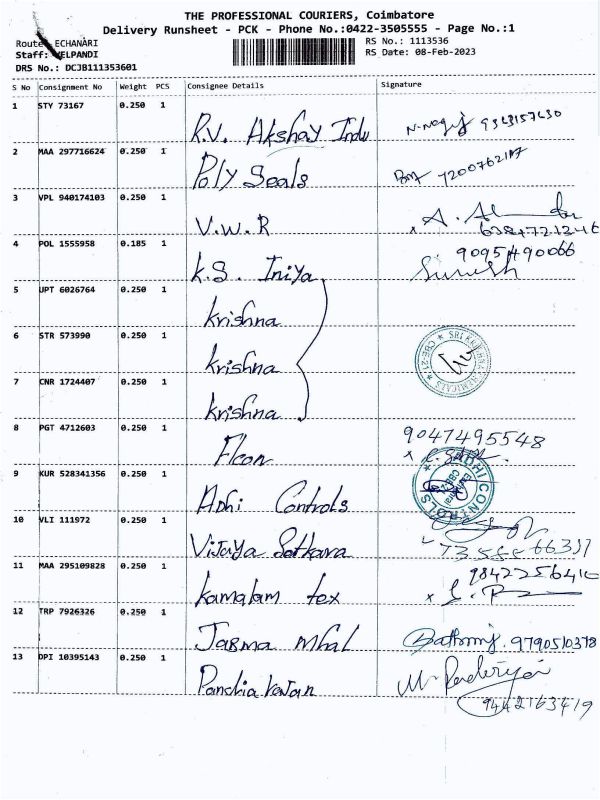 THE PROFESSIONAL COURIERS, Coimbatore
Delivery Runsheet - PCK - Phone No.:0422-3505555 - Page No.:1
Route: ECHANARI
RS No.: 1113536
Staff: VELPANDI
RS Date: 08-Feb-2023
DRS No.: DCJB111353601
S No Consignment No Weight PCS Consignee Details Signature
1 STY 73167 0.250 1
R.V. Akshay Indu
2 MAA 297716624 0.250 1
Poly Seals
3 VPL 940174103 0.250 1
V.W.R
4 POL 1555958 0.185 1 9095490066
K.S. Iniya Suresh
5 UPT 6026764 0.250 1
krishna
6 STR 573990 0.250 1
krishna
7 CNR 1724407 0.250 1
krishna
8 PGT 4712603 0.250 1 9047495548
9 KUR 528341356 0.250 1
Adhi Controls
ADHI CONTROLS
10 VLI 111972 0.250 1
Vijaya
11 MAA 295109828 0.250 1
kamalam tex
12 TRP 7926326 0.250 1
Jasma Mhal 9790510378
13 DPI 10395143 0.250 1
9442163419